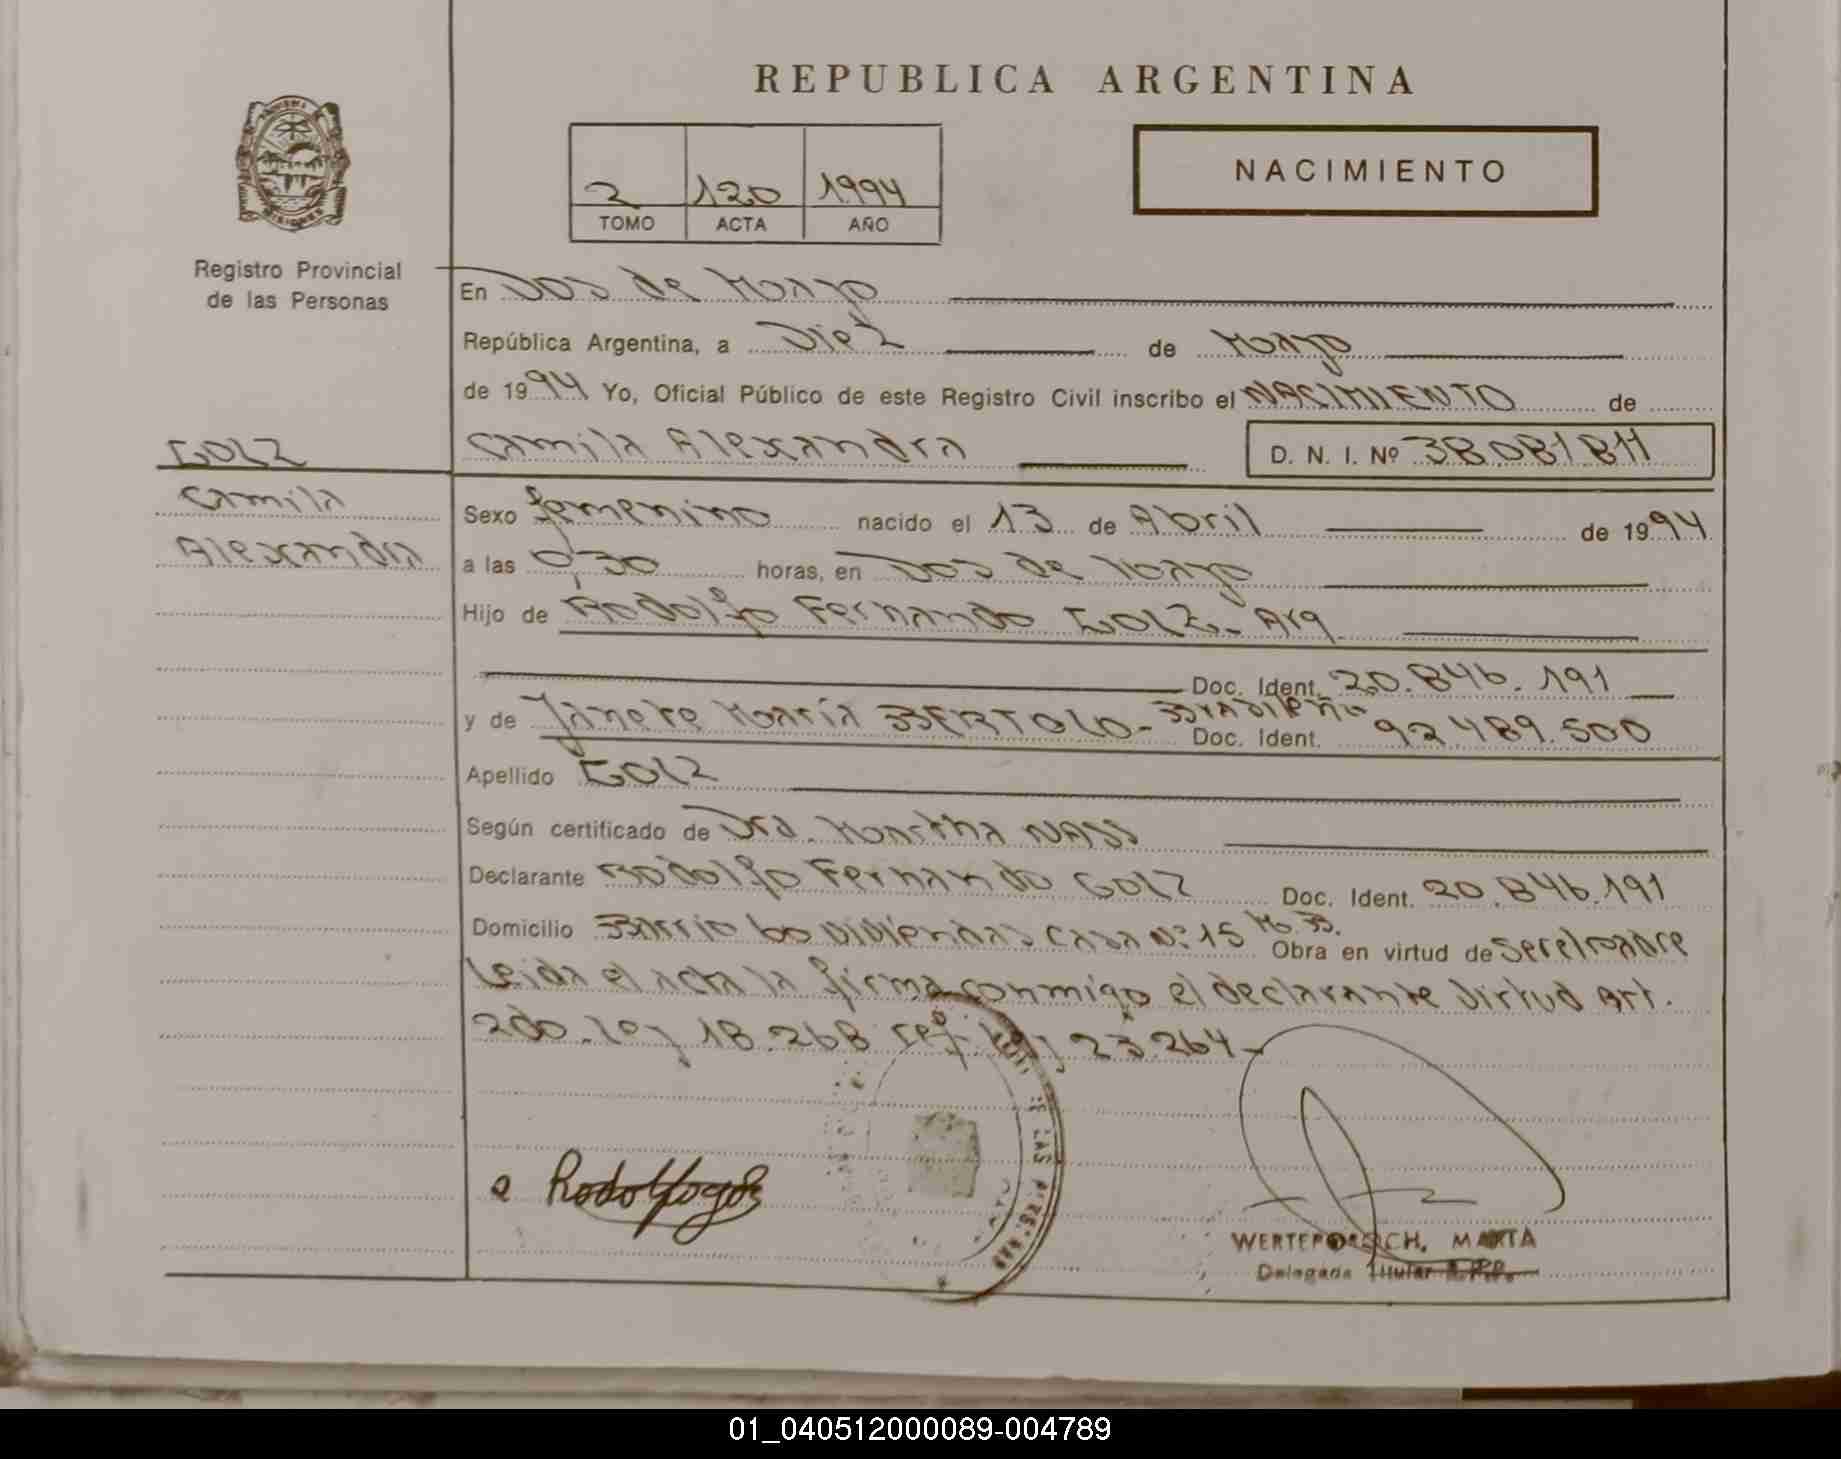 REPUBLICA ARGENTINA
NACIMIENTO
2 120 1994
TOMO ACTA AÑO
Registro Provincial
de las Personas
En Dos de Mayo
República Argentina, a Diez de Mayo
de 1994 Yo, Oficial Público de este Registro Civil inscribo el NACIMIENTO de
GOLZ
Camila Alexandra D. N. I. Nº 38.081811
Camila
Alexandra
Sexo femenino nacido el 13 de Abril de 1994
a las 0,30 horas, en Dos de Mayo
Hijo de Rodolfo Fernando GOLZ- Arg
Doc. Ident. 20.846.191
y de Janete María BERTOLO- Brasileña Doc. Ident. 92489.500
Apellido GOLZ
Según certificado de Dra. Martha NASS
Declarante Rodolfo Fernando GOLZ Doc. Ident. 20.846.191
Domicilio Barrio 60 Viviendas Casa Nº 15 Obra en virtud de ser el padre
Leida el acta la firma conmigo el declarante Virtud Art.
2do. Ley 18.268 ref Ley 23.264-
E LAS PERSONAS
Rodolfo golz
WERTEPOROCH, MARTA
Delegada Titular R.P.P.
01_040512000089-004789